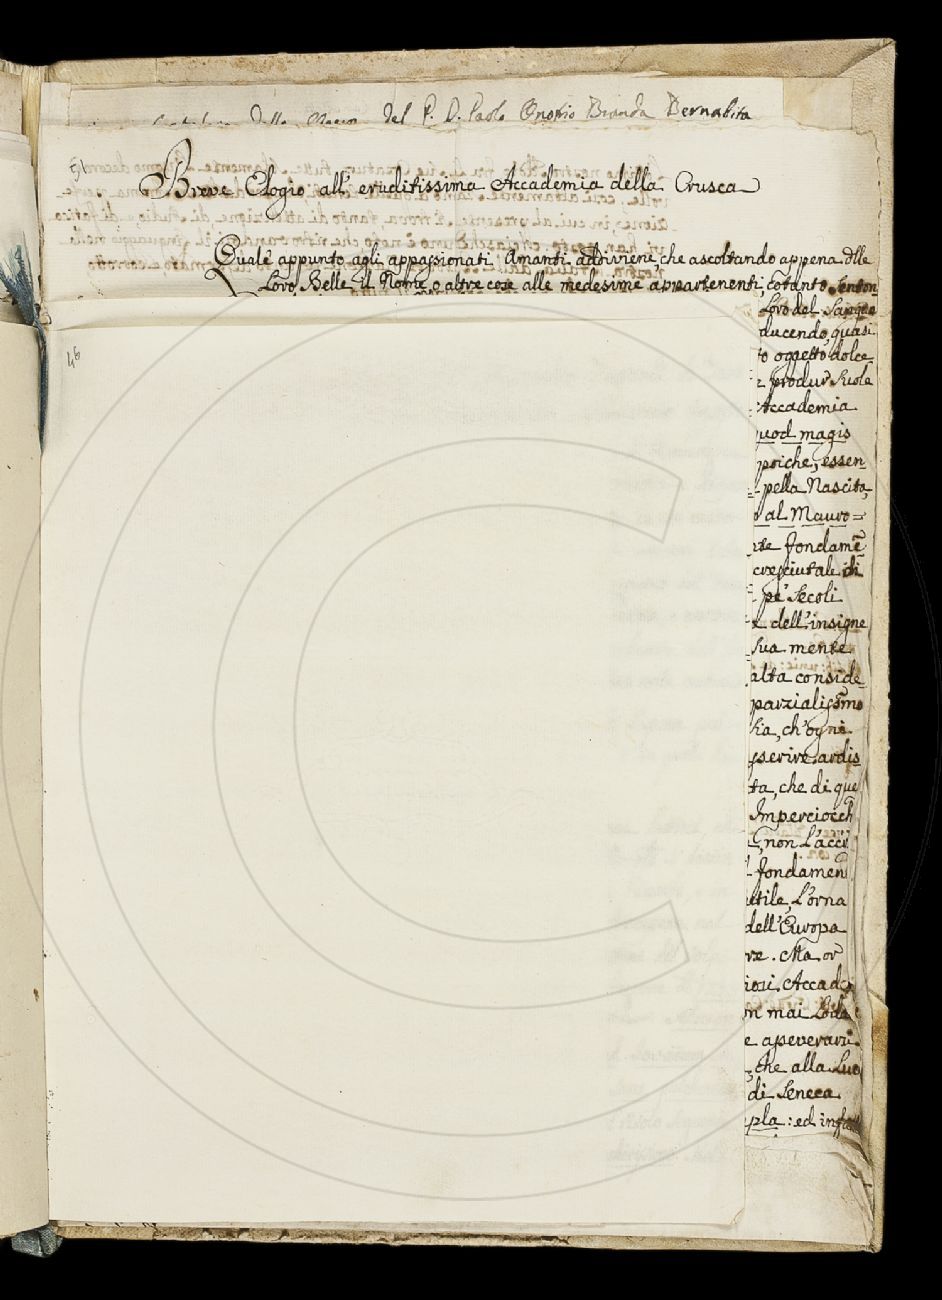 del P. D. Paolo Onofrio Branda Bernabita
51
Breve Elogio all' eruditissima Accademia della Crusca
Quale appunto agli appassionati Amanti addiviene che ascoltando appena dlle
Loro Belle il Nome o altre cose alle medesime appartenenti, cotanto senton
Loro del Sangue
ducendo, quasi
to oggetto dolce
produr suole
Accademia
quod magis
poiche, essen
pella Nascita,
o al Mauro=
te fondamē
cresciutale di
pe' Secoli
dell'insigne
sua mente
alta conside
parzialissmo
sia, ch'ogni
sserire ardis
ta, che di que
Imperciocch
non l'acci
fondamen
utile, L'orna
dell'Europa
re. Ma or
iosi Accade
on mai Loda
e asseverare
che alla Luo
di Seneca
pla: ed infat
46